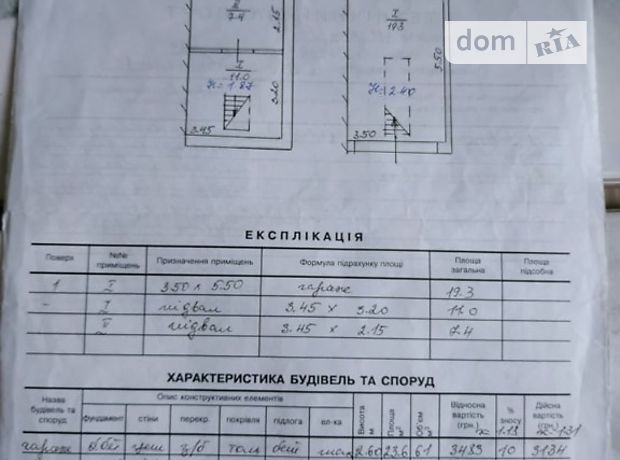 dom RIA
II
7.4
2.15
I
11.0
H=1.87
3.20
3.45
I
19.3
5.50
H=2.40
3.50
ЕКСПЛІКАЦІЯ
Поверх №№ приміщень Призначення приміщень Формула підрахунку площі Площа загальна Площа підсобна
1 I 3.50 х 5.50 гараж 19.3
- I підвал 3.45 х 3.20 11.0
II підвал 3.45 х 2.15 7.4
ХАРАКТЕРИСТИКА БУДІВЕЛЬ ТА СПОРУД
Назва будівель та споруд Опис конструктивних елементів Висота м Площа м² Об'єм м³ Відносна вартість (грн.) % зносу Дійсна вартість (грн.)
фундамент стіни перекр. покрівля підлога ел-ка
1.18 1.31
гараж з/б 2.60 23.6 61 3483 10 3134